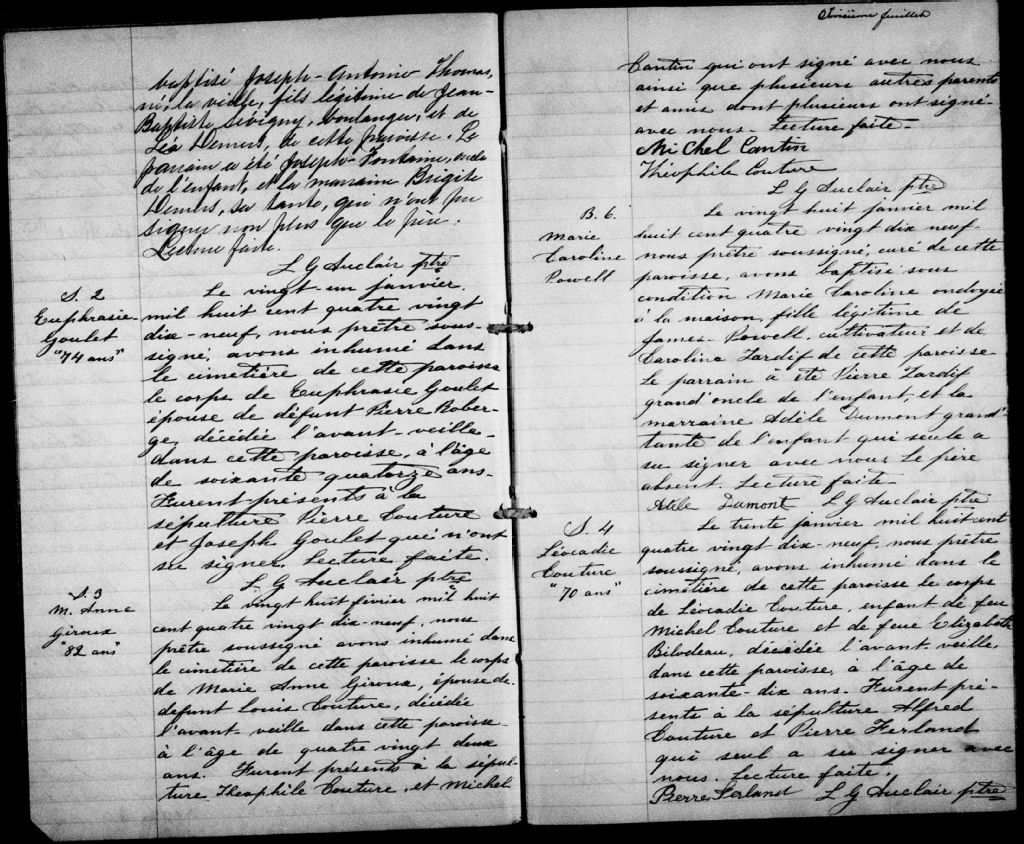 baptisé Joseph-Antonio Thomas,
né la veille, fils légitime de Jean-
Baptiste Sévigny, boulanger, et de
Léa Demers, de cette paroisse. Le
parrain a été Joseph Fontaine, oncle
de l'enfant, et la marraine Brigite
Demers, sa tante, qui n'ont pu
signer non plus que le père.
Lecture faite.
L G Auclair ptre
S. 2
Euphrasie
Goulet
"74 ans"
Le vingt-un janvier
mil huit cent quatre vingt
dix-neuf, nous prêtre sous-
signé, avons inhumé dans
le cimetière de cette paroisse
le corps de Euphrasie Goulet
épouse de défunt Pierre Rober-
ge, décédée l'avant-veille
dans cette paroisse, à l'âge
de soixante quatorze ans.
Furent présents à la
sépulture Pierre Couture
et Joseph Goulet qui n'ont
su signer. Lecture faite.
L G Auclair ptre
S. 3
M. Anne
Giroux
"82 ans"
Le vingt huit février mil huit
cent quatre vingt dix-neuf, nous
prêtre soussigné avons inhumé dans
le cimetière de cette paroisse le corps
de Marie Anne Giroux, épouse de
defunt Louis Couture, décédée
l'avant veille dans cette paroisse
à l'âge de quatre vingt deux
ans. Furent présents à la sépul-
ture Théophile Couture, et Michel
Troisième feuillet
Cantin qui ont signé avec nous
ainsi que plusieurs autres parents
et amis dont plusieurs ont signé
avec nous. Lecture faite.
Michel Cantin
Théophile Couture
L G Auclair ptre
B. 6.
Marie
Caroline
Powell
Le vingt huit janvier mil
huit cent quatre vingt dix neuf
nous prêtre soussigné, curé de cette
paroisse, avons baptisé sous
condition Marie Caroline ondoyée
à la maison, fille légitime de
James Powell, cultivateur et de
Carolina Tardif de cette paroisse.
Le parrain à été Pierre Tardif
grand'oncle de l'enfant, et la
marraine Adèle Dumont grand'
tante de l'enfant qui seule a
su signer avec nous. Le père
absent. Lecture faite.
Adèle Dumont L G Auclair ptre
S. 4
Léocadie
Couture
"70 ans"
Le trente janvier mil huit cent
quatre vingt dix-neuf, nous prêtre
soussigné, avons inhumé dans le
cimetière de cette paroisse le corps
de Léocadie Couture, enfant de feu
Michel Couture et de feue Elizabeth
Bilodeau, décédée l'avant veille,
dans cette paroisse, à l'âge de
soixante-dix ans. Furent pré-
sents à la sépulture Alfred
Couture et Pierre Ferland
qui seul a su signer avec
nous. Lecture faite.
Pierre Ferland L G Auclair ptre